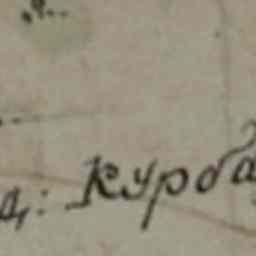 д: Курба